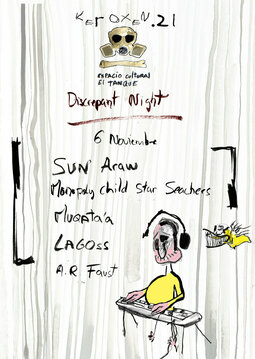 KEROXEN.21
ESPACIO CULTURAL
EL TANQUE
Discrepant Night
6 Noviembre
SUN ARAW
Monopoly Child Star Seachers
Muqata'a
LAGOSS
A.R. Faust